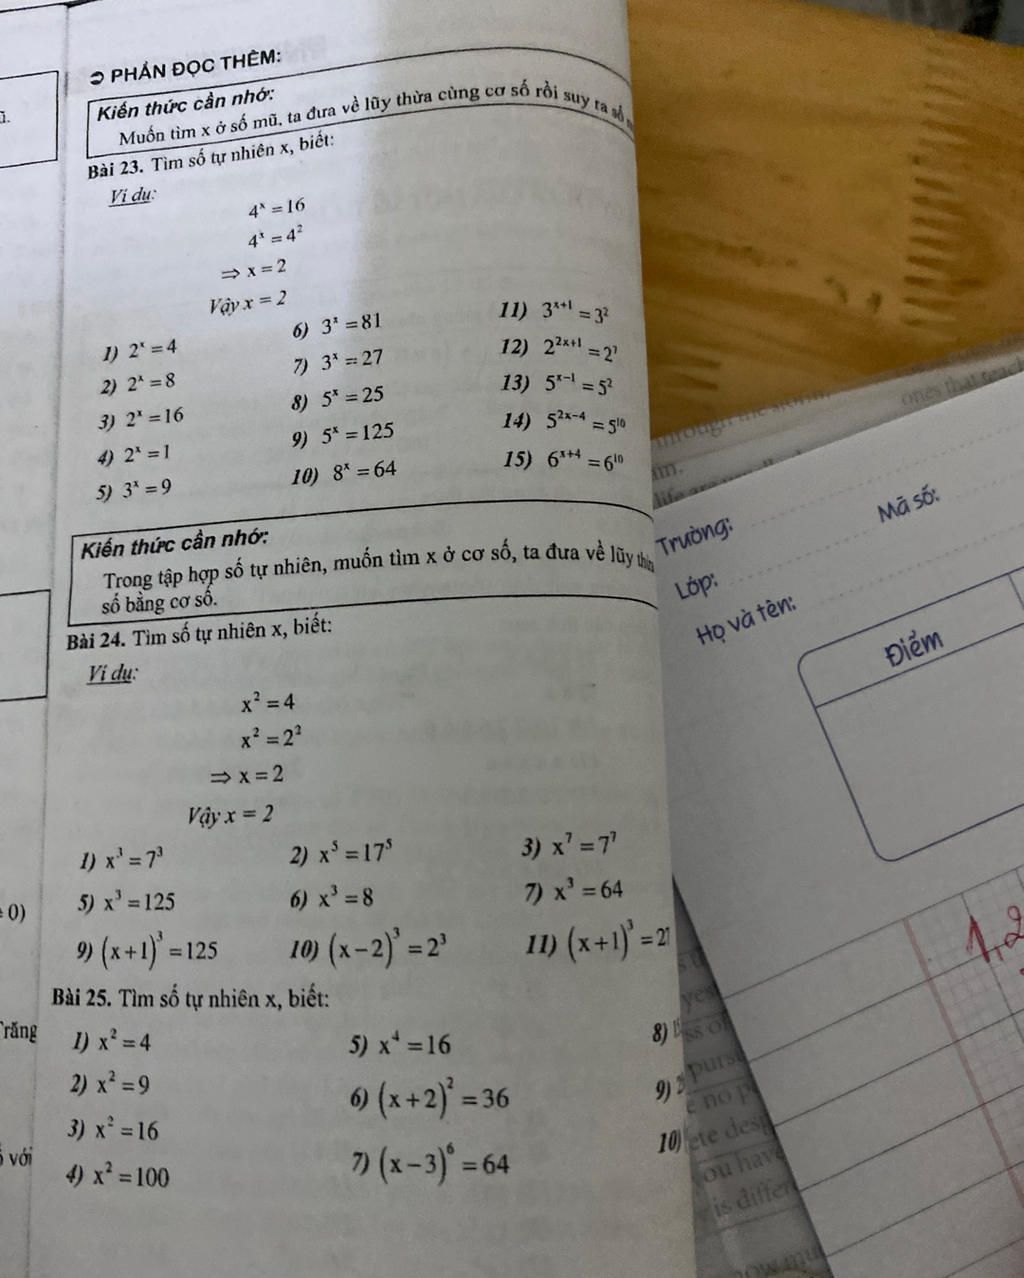 ➲ PHẦN ĐỌC THÊM:
Kiến thức cần nhớ:
Muốn tìm x ở số mũ, ta đưa về lũy thừa cùng cơ số rồi suy ra số
Bài 23. Tìm số tự nhiên x, biết:
Ví dụ:
4ˣ = 16
4ˣ = 4²
⇒ x = 2
Vậy x = 2
1) 2ˣ = 4
2) 2ˣ = 8
3) 2ˣ = 16
4) 2ˣ = 1
5) 3ˣ = 9
6) 3ˣ = 81
7) 3ˣ = 27
8) 5ˣ = 25
9) 5ˣ = 125
10) 8ˣ = 64
11) 3ˣ⁺¹ = 3²
12) 2²ˣ⁺¹ = 2⁷
13) 5ˣ⁻¹ = 5²
14) 5²ˣ⁻⁴ = 5¹⁰
15) 6ˣ⁺⁴ = 6¹⁰
Kiến thức cần nhớ:
Trong tập hợp số tự nhiên, muốn tìm x ở cơ số, ta đưa về lũy
số bằng cơ số.
Bài 24. Tìm số tự nhiên x, biết:
Ví dụ:
x² = 4
x² = 2²
⇒ x = 2
Vậy x = 2
1) x³ = 7³ 2) x⁵ = 17⁵ 3) x⁷ = 7⁷
5) x³ = 125 6) x³ = 8 7) x³ = 64
9) (x+1)³ = 125 10) (x−2)³ = 2³ 11) (x+1)³ = 27
Bài 25. Tìm số tự nhiên x, biết:
1) x² = 4
2) x² = 9
3) x² = 16
4) x² = 100
5) x⁴ = 16
6) (x+2)² = 36
7) (x−3)⁶ = 64
8)
9)
10)
0)
với
ones that teach
through the
Trường:
Mã số:
Lớp:
Họ và tên:
Điểm
1,2